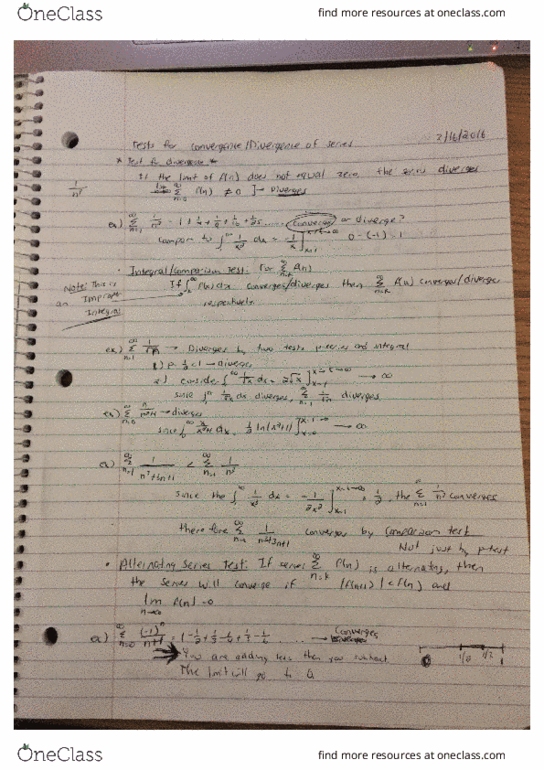 OneClass find more resources at oneclass.com
Tests for convergence/Divergence of series 2/16/2016
* Test for divergence *
If the limit of f(n) does not equal zero the series diverges
1/n² lim Σ f(n) ≠ 0 ] → Diverges
ex) Σ 1/n² = 1 + 1/4 + 1/9 + 1/16 + 1/25 ..... converge or diverge?
∫ 1/x² dx = -1/x ] 0 - (-1) = 1
• Integral/comparison Test: For Σ f(n)
Note: This is If ∫ f(x) dx converges/diverges then Σ f(n) converges/diverges
an Improper respectively
Integral
ex) Σ 1/√n → Diverges by two tests p-series and integral
1) p = 1/2 < 1 → diverges
2) consider ∫ 1/√x dx = 2√x ] → ∞
since ∫ 1/√x dx diverges, Σ 1/√n diverges
ex) Σ n/n²+1 → diverges
since ∫ x/x²+1 dx = 1/2 ln(x²+1) ] → ∞
ex) Σ 1/n³+3n+1 < Σ 1/n³
since the ∫ 1/x³ dx = -1/2x² ] = 1/2, the Σ 1/n³ converges
therefore Σ 1/n³+3n+1 converges by comparison test
Not just by p-test
• Alternating Series Test: If series Σ f(n) is alternating, then
the series will converge if |f(n+1)| < f(n) and
lim f(n) = 0
n→∞
ex) Σ (-1)ⁿ/n+1 = 1 - 1/2 + 1/3 - 1/4 + 1/5 - 1/6 ..... → Converges
You are adding less then you subtract
The limit will go to 0.
OneClass find more resources at oneclass.com